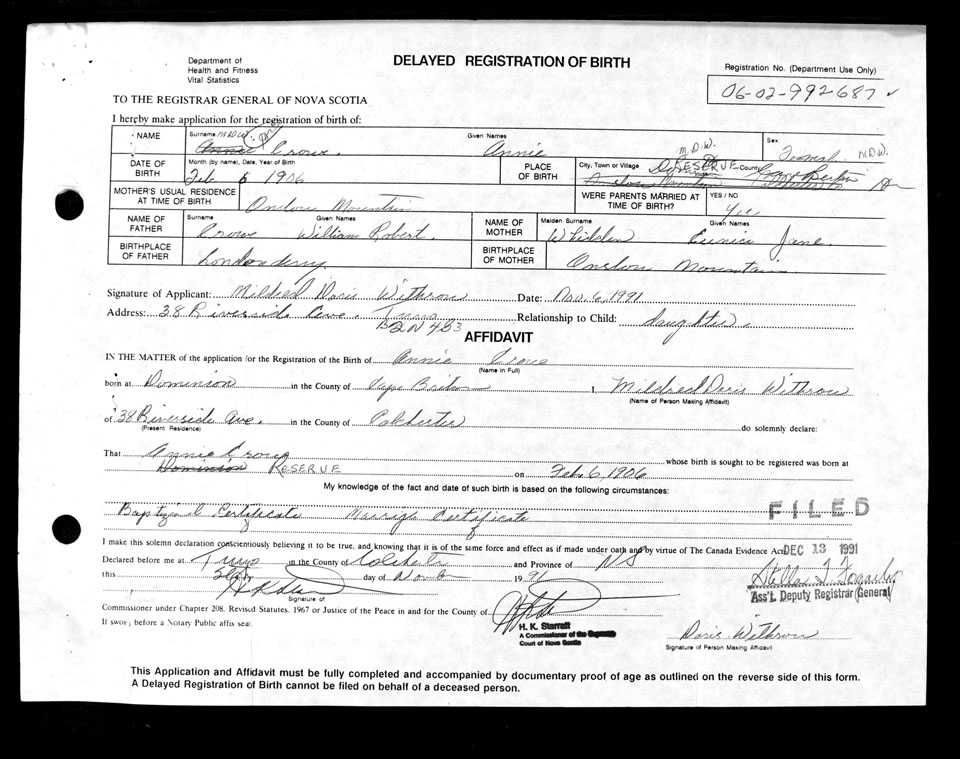 Department of
Health and Fitness
Vital Statistics
DELAYED REGISTRATION OF BIRTH
Registration No. (Department Use Only)
06-02-992687
TO THE REGISTRAR GENERAL OF NOVA SCOTIA
I hereby make application for the registration of birth of:
NAME Surname M.D.W. Annie Crowe. Given Names Annie Sex Female M.D.W.
DATE OF BIRTH Month (by name), Date, Year of Birth Feb 6 1906 PLACE OF BIRTH City, Town or Village M.D.W. RESERVE Onslow Mountain County Cape Breton Colchester
MOTHER'S USUAL RESIDENCE AT TIME OF BIRTH Onslow Mountain WERE PARENTS MARRIED AT TIME OF BIRTH? YES / NO Yes
NAME OF FATHER Surname Crowe Given Names William Robert. NAME OF MOTHER Maiden Surname Whidden Given Names Eunice Jane.
BIRTHPLACE OF FATHER Londonderry BIRTHPLACE OF MOTHER Onslow Mountain
Signature of Applicant: Mildred Doris Withrow Date: Nov. 6, 1991
Address: 38 Riverside Ave. Truro Relationship to Child: daughter.
B2N 4S3
AFFIDAVIT
IN THE MATTER of the application for the Registration of the Birth of Annie Crowe
(Name in Full)
born at Dominion in the County of Cape Breton I Mildred Doris Withrow
(Name of Person Making Affidavit)
of 38 Riverside Ave. in the County of Colchester do solemnly declare:
(Present Residence)
That Annie Crowe whose birth is sought to be registered was born at
Dominion RESERVE on Feb. 6, 1906
My knowledge of the fact and date of such birth is based on the following circumstances:
Baptismal Certificate Marriage Certificate
FILED
I make this solemn declaration conscientiously believing it to be true, and knowing that it is of the same force and effect as if made under oath and by virtue of The Canada Evidence Act
DEC 13 1991
Declared before me at Truro in the County of Colchester and Province of NS
this day of Nov 1991
Signature of
Ass't. Deputy Registrar (General)
Commissioner under Chapter 208, Revisd Statutes, 1967 or Justice of the Peace in and for the County of
If sworn before a Notary Public affix seal.
H. K. Starratt
A Commissioner of the Supreme
Court of Nova Scotia
Doris Withrow
Signature of Person Making Affidavit
This Application and Affidavit must be fully completed and accompanied by documentary proof of age as outlined on the reverse side of this form.
A Delayed Registration of Birth cannot be filed on behalf of a deceased person.